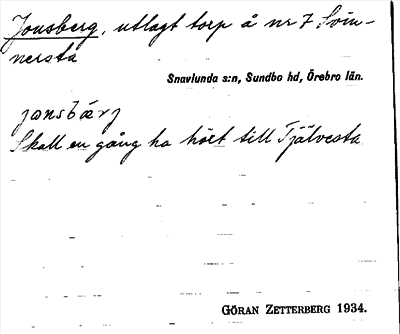 Jonsberg, utlagt torp å nr 7 Svin-
nersta
Snavlunda s:n, Sundbo hd, Örebro län.
jonsbärj
Skall en gång ha hört till Tjälvesta
GÖRAN ZETTERBERG 1934.